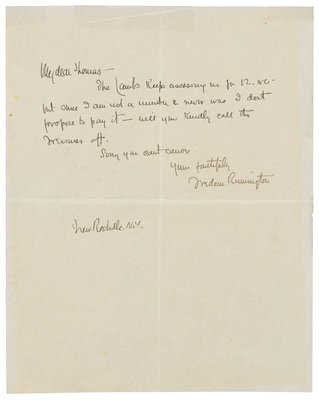 My dear Thomas—
The Lambs Keep assessing me for 12.
but since I am not a member & never was I dont
propose to pay it — will you Kindly call the
Treasurer off.
Sorry you cant canoe
Yours faithfully
Frederic Remington
New Rochelle, N.Y.